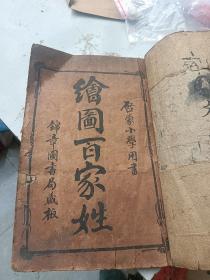 啓蒙小學用書
繪圖百家姓
錦章圖書局藏板